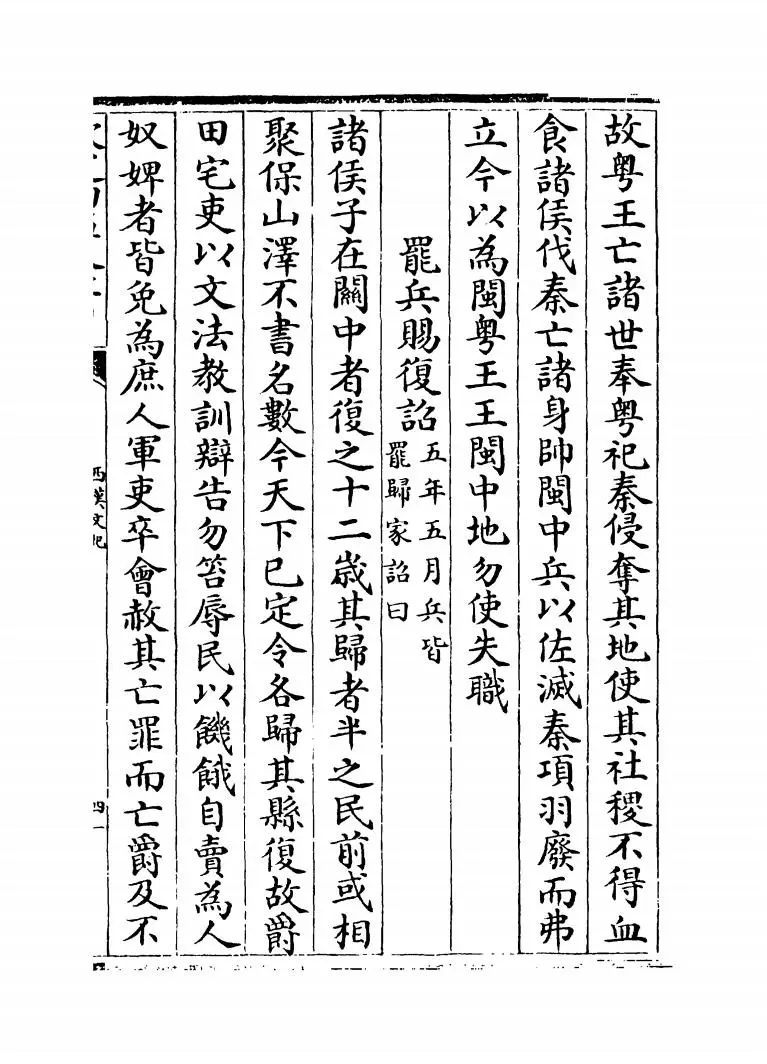 故粤王亡諸世奉粤祀秦侵奪其地使其社稷不得血
食諸侯伐秦亡諸身帥閩中兵以佐滅秦項羽廢而弗
立今以為閩粤王王閩中地勿使失職
罷兵賜復詔五年五月兵皆
罷歸家詔曰
諸侯子在關中者復之十二歲其歸者半之民前或相
聚保山澤不書名數今天下已定令各歸其縣復故爵
田宅吏以文法教訓辯告勿笞辱民以饑餓自賣為人
奴婢者皆免為庶人軍吏卒會赦其亡罪而亡爵及不
西漢文紀
四